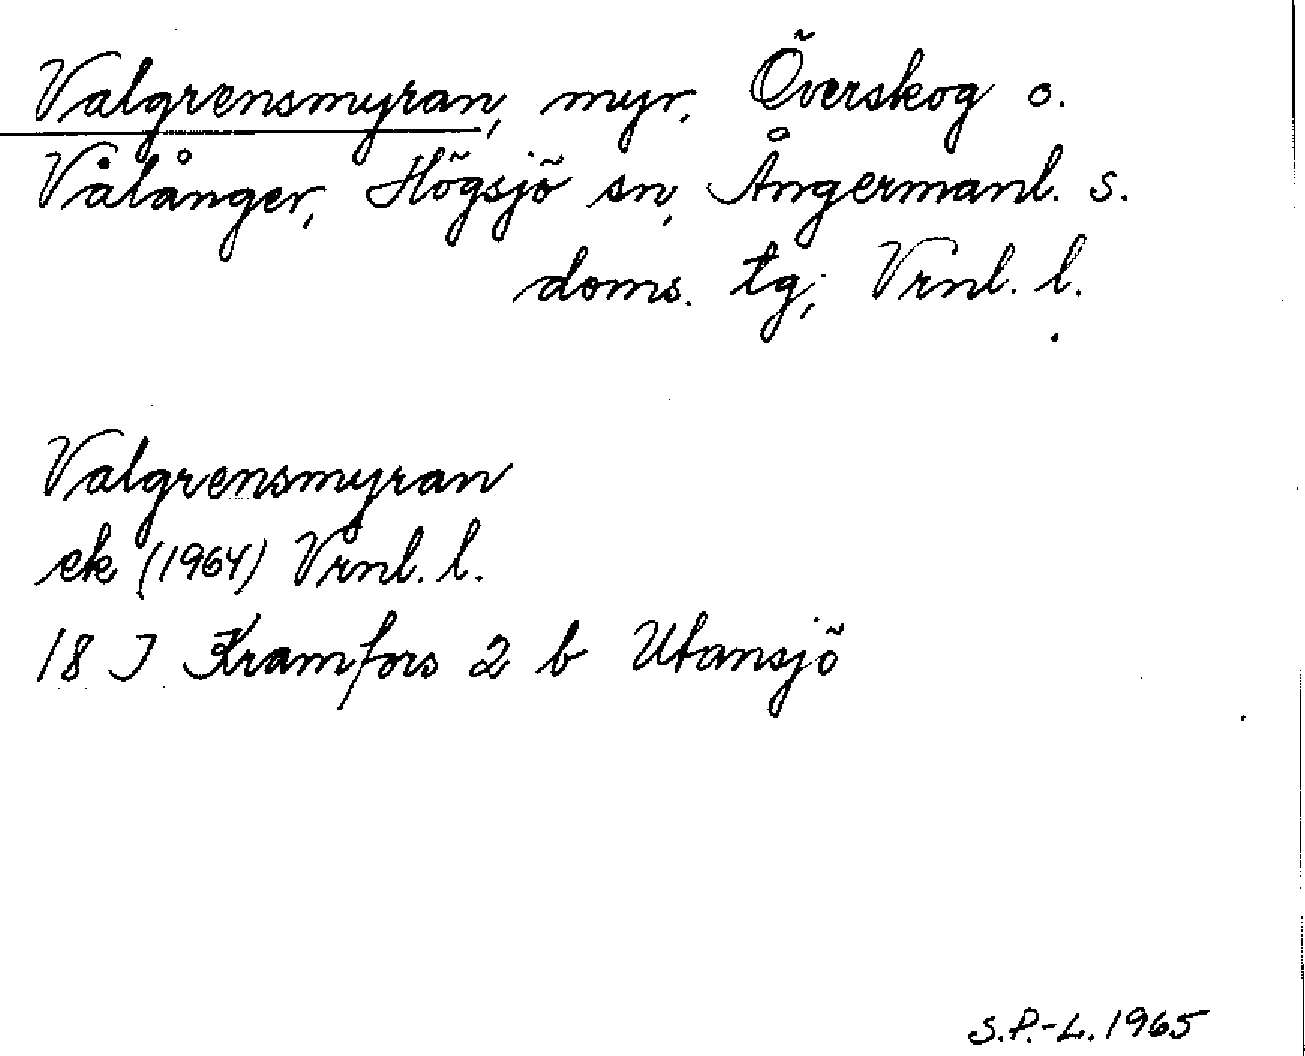 Valgrensmyran, myr, Överskog o.
Vålånger, Högsjö sn, Ångermanl. s.
doms. tg; Vrnl. l.
Valgrensmyran
ek (1964) Vrnl. l.
18 J Kramfors 2 b Utansjö
S.P.-L. 1965